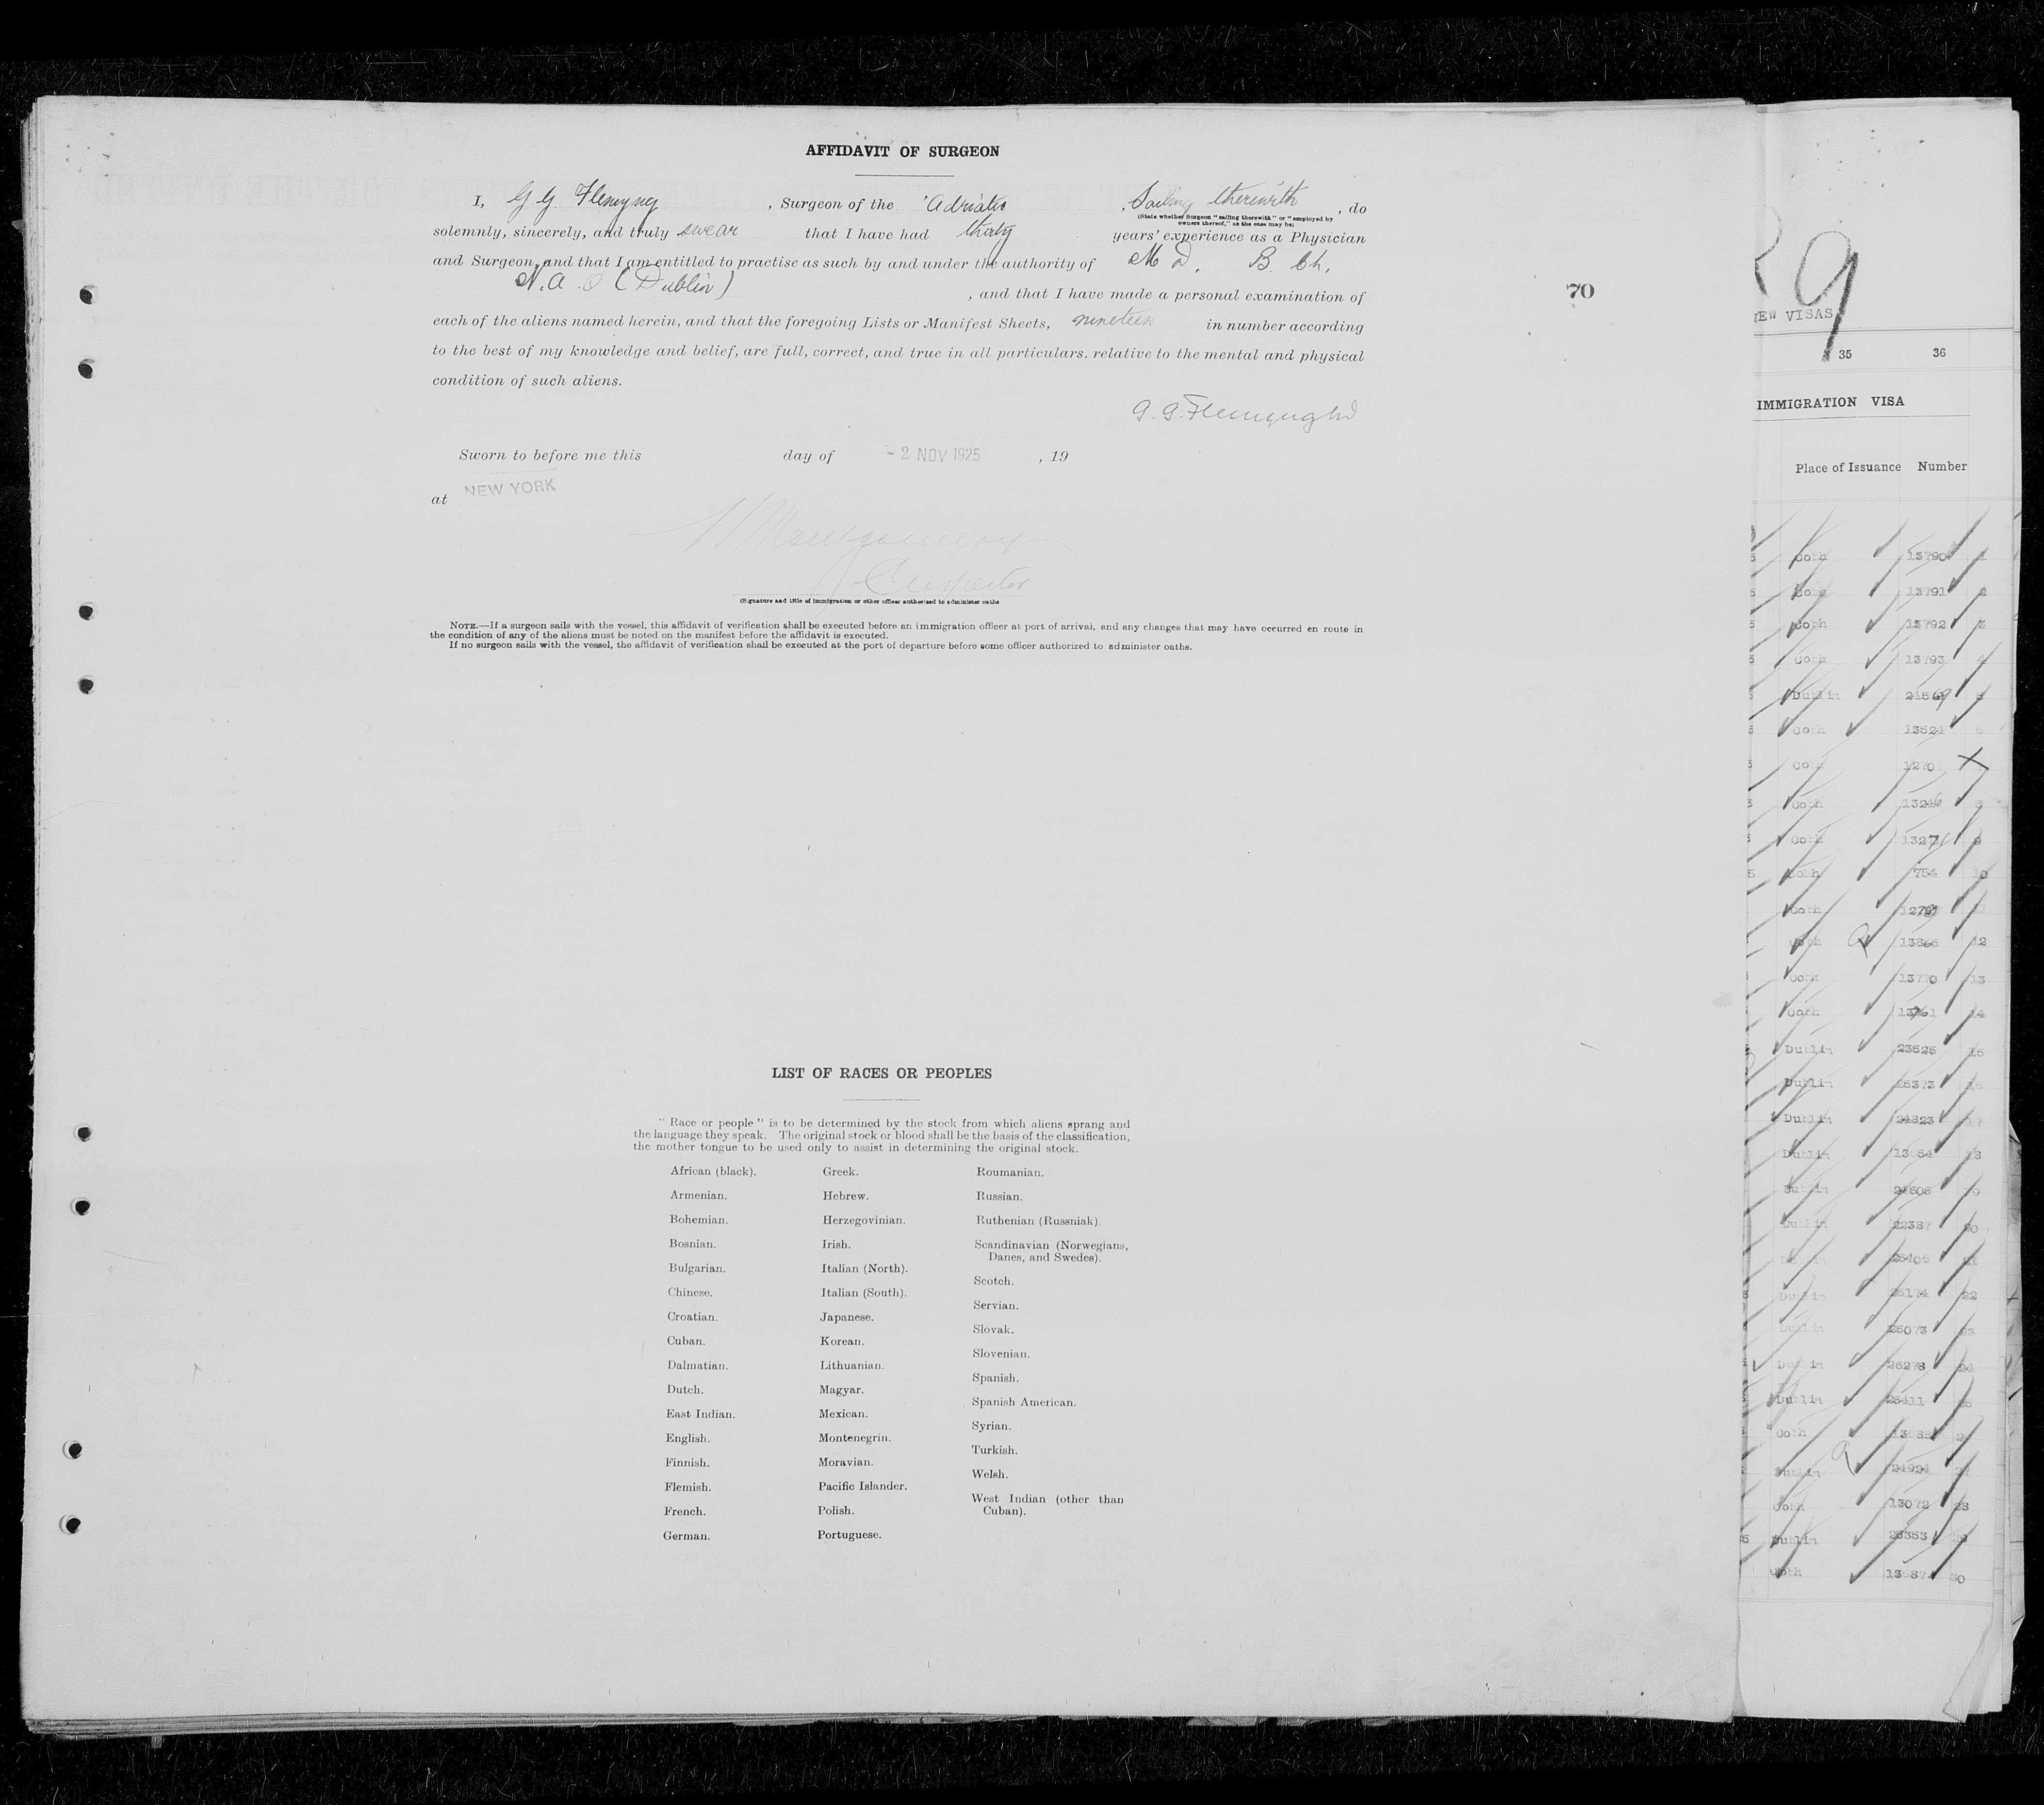 AFFIDAVIT OF SURGEON
I, G. G. Flemyng , Surgeon of the "Adriatic , Sailing therewith , do
(State whether Surgeon "sailing therewith" or "employed by
owners thereof," as the case may be)
solemnly, sincerely, and truly swear that I have had thirty years' experience as a Physician
and Surgeon, and that I am entitled to practise as such by and under the authority of M D, B. Ch,
(Dublin) , and that I have made a personal examination of
70
each of the aliens named herein, and that the foregoing Lists or Manifest Sheets, nineteen in number according
to the best of my knowledge and belief, are full, correct, and true in all particulars, relative to the mental and physical
condition of such aliens.
G. G. Flemyng
Sworn to before me this day of - 2 NOV 1925 , 19
at NEW YORK
Montgomery
Inspector
(Signature and title of immigration or other officer authorised to administer oaths
NOTE.—If a surgeon sails with the vessel, this affidavit of verification shall be executed before an immigration officer at port of arrival, and any changes that may have occurred en route in
the condition of any of the aliens must be noted on the manifest before the affidavit is executed.
If no surgeon sails with the vessel, the affidavit of verification shall be executed at the port of departure before some officer authorized to administer oaths.
LIST OF RACES OR PEOPLES
"Race or people" is to be determined by the stock from which aliens sprang and
the language they speak. The original stock or blood shall be the basis of the classification,
the mother tongue to be used only to assist in determining the original stock.
African (black).
Armenian.
Bohemian.
Bosnian.
Bulgarian.
Chinese.
Croatian.
Cuban.
Dalmatian.
Dutch.
East Indian.
English.
Finnish.
Flemish.
French.
German.
Greek.
Hebrew.
Herzegovinian.
Irish.
Italian (North).
Italian (South).
Japanese.
Korean.
Lithuanian.
Magyar.
Mexican.
Montenegrin.
Moravian.
Pacific Islander.
Polish.
Portuguese.
Roumanian.
Russian.
Ruthenian (Russniak).
Scandinavian (Norwegians,
Danes, and Swedes).
Scotch.
Servian.
Slovak.
Slovenian.
Spanish.
Spanish American.
Syrian.
Turkish.
Welsh.
West Indian (other than
Cuban).
9
NEW VISAS
35 36
IMMIGRATION VISA
Place of Issuance Number
Cobh 13790 1
Cobh 13791 2
Cobh 13792 3
Cobh 13793 4
Dublin 5
Cobh 13624 6
Cobh
Cobh 8
Cobh 9
Cobh 754 10
Cobh
Cobh 12
Cobh 13770 13
Cobh 14
Dublin 23525 15
Dublin 25373 16
Dublin 24823 17
Dublin 18
Dublin 19
Dublin 22387 20
Dublin 25406 21
Dublin 25174 22
Dublin 25073 23
Dublin 25278 24
Dublin 25411 25
Cobh 26
Dublin 24924 27
Cobh 13072 28
Dublin 29
Cobh 30